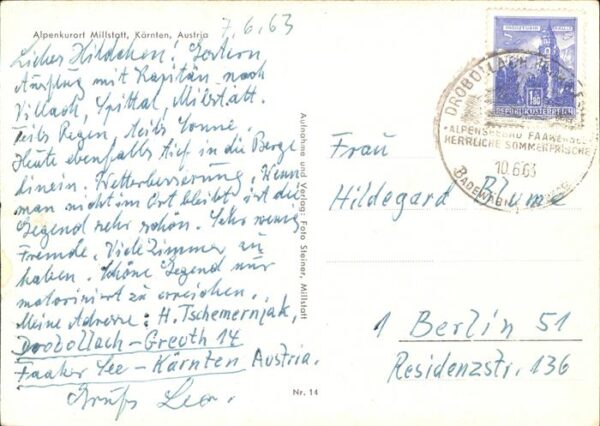 Alpenkurort Millstatt, Kärnten, Austria
7.6.63
Liebes Hildchen! Gestern
Ausflug mit Kapitän nach
Villach, Spittal, Milstatt.
Teils Regen, teils Sonne.
Heute ebenfalls tief in die Berge
hinein. Wetterbesserung. Wenn
man nicht im Ort bleibt, ist die
Gegend sehr schön. Sehr wenig
Fremde. Viele Zimmer zu
haben. Schöne Gegend nur
motorisiert zu erreichen.
Meine Adresse: H. Tschemernjak,
Drobollach-Greuth 14
Faaker See - Kärnten Austria.
Gruß Leo.
Aufnahme und Verlag: Foto Steiner, Millstatt
Nr. 14
S
1.80
REPUBLIK ÖSTERREICH
DROBOLLACH
ALPENSEEBAD FAAKERSEE
HERRLICHE SOMMERFRISCHE
10.6.63
Frau
Hildegard Blume
1 Berlin 51
Residenzstr. 136